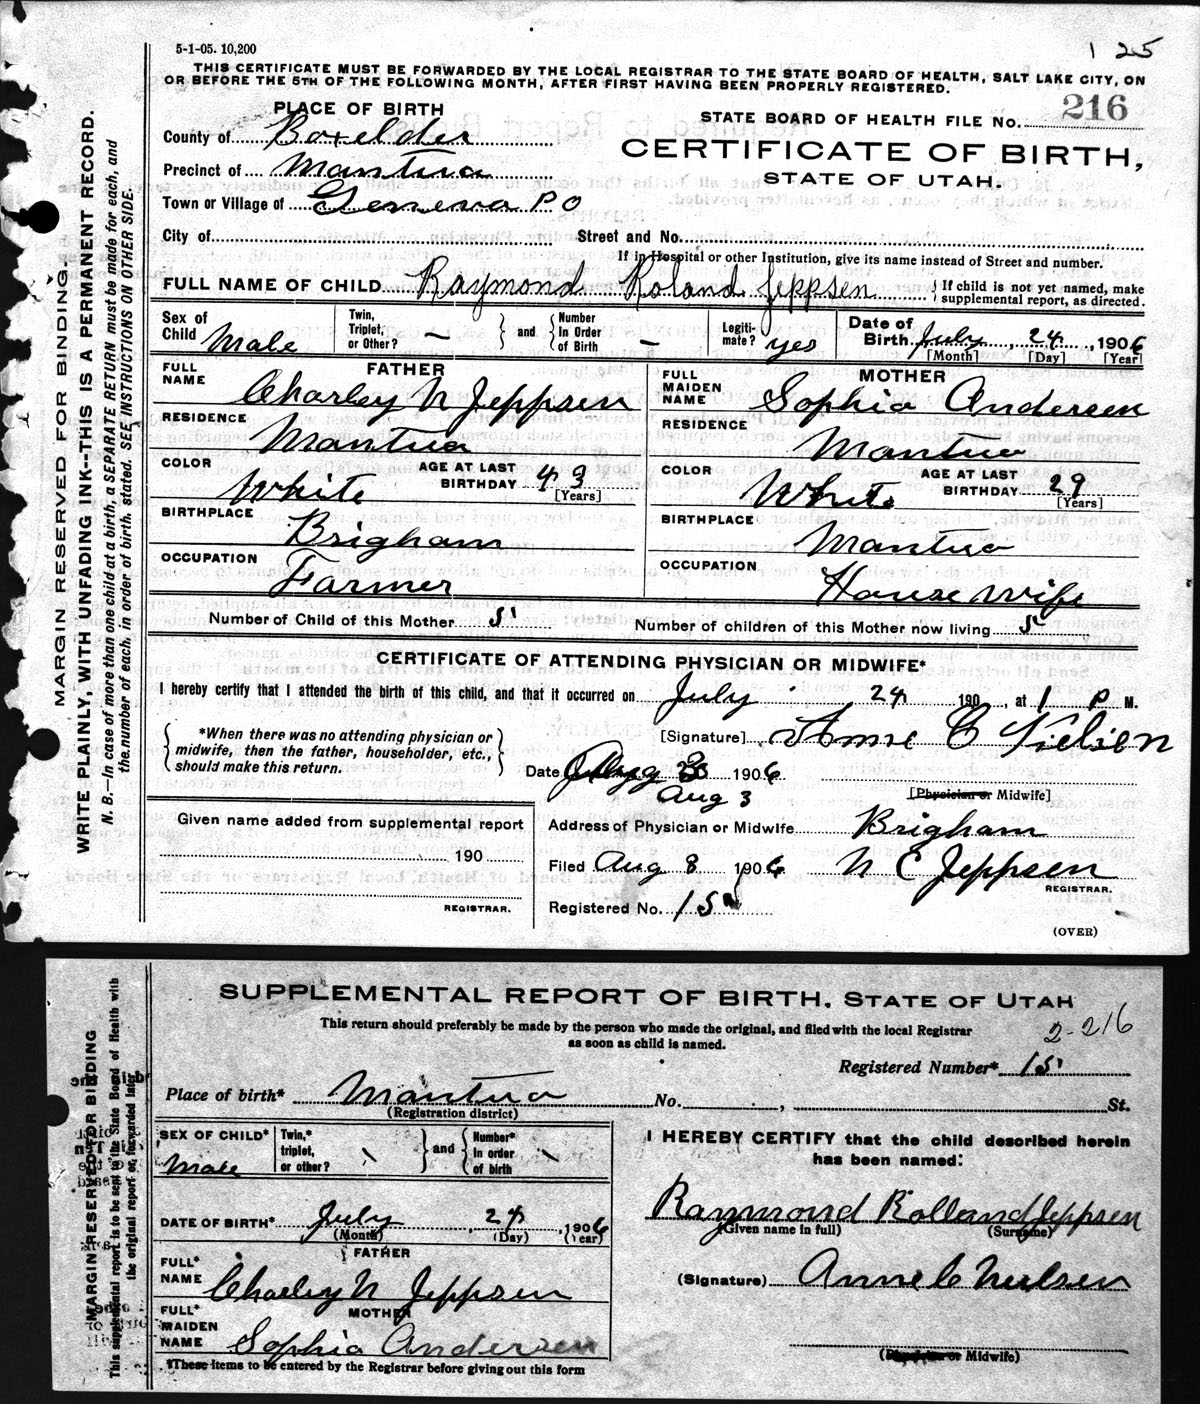 5-1-05. 10,200
1 25
THIS CERTIFICATE MUST BE FORWARDED BY THE LOCAL REGISTRAR TO THE STATE BOARD OF HEALTH, SALT LAKE CITY, ON
OR BEFORE THE 5TH OF THE FOLLOWING MONTH, AFTER FIRST HAVING BEEN PROPERLY REGISTERED.
MARGIN RESERVED FOR BINDING.
WRITE PLAINLY, WITH UNFADING INK--THIS IS A PERMANENT RECORD.
N. B.—In case of more than one child at a birth, a SEPARATE RETURN must be made for each, and
the number of each, in order of birth, stated. SEE INSTRUCTIONS ON OTHER SIDE.
PLACE OF BIRTH
County of Boxelder
Precinct of Mantua
Town or Village of Geneva P O
STATE BOARD OF HEALTH FILE No. 216
CERTIFICATE OF BIRTH,
STATE OF UTAH.
City of Street and No.
If in Hospital or other Institution, give its name instead of Street and number.
FULL NAME OF CHILD Raymond Roland Jeppsen { If child is not yet named, make
supplemental report, as directed.
Sex of Child Male
Twin, Triplet, or Other? — } and { Number In Order of Birth —
Legiti-mate? yes
Date of Birth July 24, 1906
[Month] [Day] [Year]
FATHER
FULL NAME Charley N Jeppsen
RESIDENCE Mantua
COLOR White AGE AT LAST BIRTHDAY 43 [Years]
BIRTHPLACE Brigham
OCCUPATION Farmer
MOTHER
FULL MAIDEN NAME Sophia Andersen
RESIDENCE Mantua
COLOR White AGE AT LAST BIRTHDAY 29 [Years]
BIRTHPLACE Mantua
OCCUPATION House wife
Number of Child of this Mother 5 Number of children of this Mother now living 5
CERTIFICATE OF ATTENDING PHYSICIAN OR MIDWIFE*
I hereby certify that I attended the birth of this child, and that it occurred on July 24 190 , at 1 P M.
{ *When there was no attending physician or
midwife, then the father, householder, etc.,
should make this return. }
[Signature] Anne C Nielsen
Date 1906
Aug 3
[Physician or Midwife]
Given name added from supplemental report
190
REGISTRAR.
Address of Physician or Midwife Brigham
Filed Aug 8 1906 N C Jeppsen
REGISTRAR.
Registered No. 15
(OVER)
SUPPLEMENTAL REPORT OF BIRTH, STATE OF UTAH
This return should preferably be made by the person who made the original, and filed with the local Registrar
as soon as child is named.
2-216
MARGIN RESERVED FOR BINDING
This supplemental report is to be sent to the State Board of Health with
the original report or, forwarded later
Registered Number* 15
Place of birth* Mantua No. , St.
(Registration district)
SEX OF CHILD* Male
Twin,* triplet, or other? \ } and { Number* In order of birth \
DATE OF BIRTH* July, 24, 1906
(Month) (Day) (Year)
FATHER
FULL* NAME Charley N Jeppsen
MOTHER
FULL* MAIDEN NAME Sophia Andersen
*These items to be entered by the Registrar before giving out this form
I HEREBY CERTIFY that the child described herein
has been named:
Raymond Rolland Jeppsen
(Given name in full) (Surname)
(Signature) Anne C Nielsen
(Physician or Midwife)